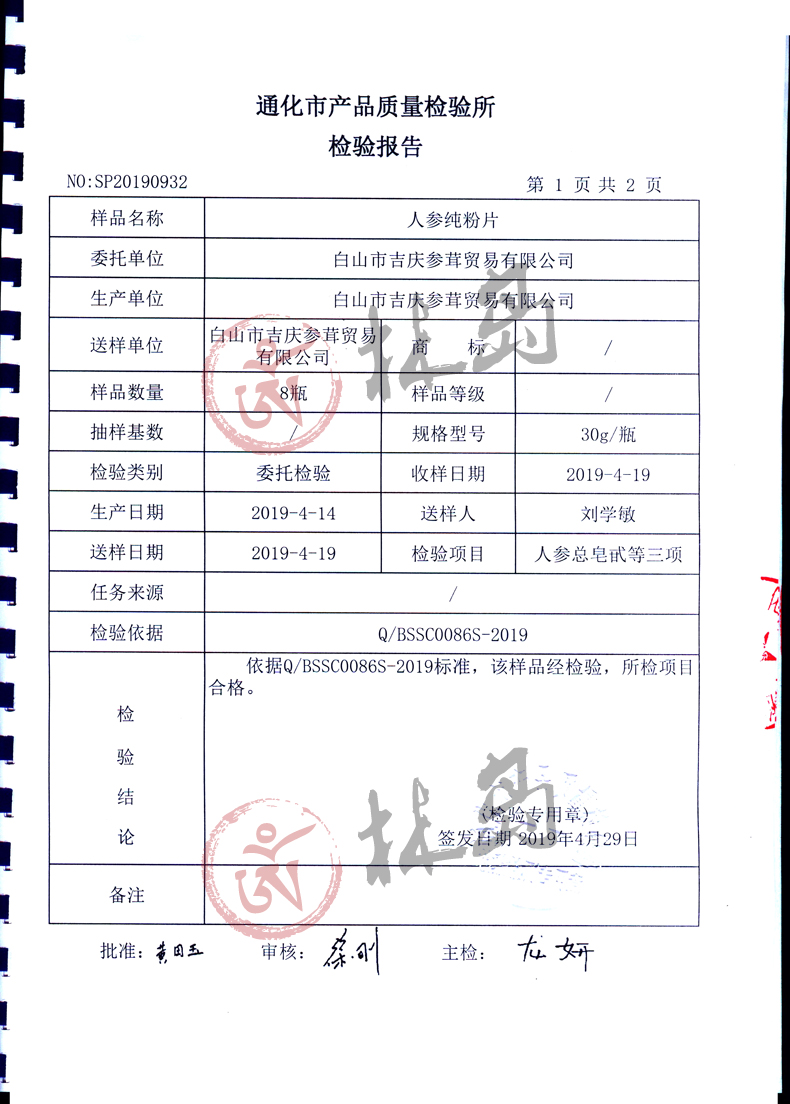 通化市产品质量检验所
检验报告
NO:SP20190932
第 1 页 共 2 页
样品名称 人参纯粉片
委托单位 白山市吉庆参茸贸易有限公司
生产单位 白山市吉庆参茸贸易有限公司
送样单位 白山市吉庆参茸贸易有限公司 商 标 /
样品数量 8瓶 样品等级 /
抽样基数 / 规格型号 30g/瓶
检验类别 委托检验 收样日期 2019-4-19
生产日期 2019-4-14 送样人 刘学敏
送样日期 2019-4-19 检验项目 人参总皂甙等三项
任务来源 /
检验依据 Q/BSSC0086S-2019
检验结论
依据Q/BSSC0086S-2019标准，该样品经检验，所检项目
合格。
（检验专用章）
签发日期 2019年4月29日
备注
批准： 审核： 主检：